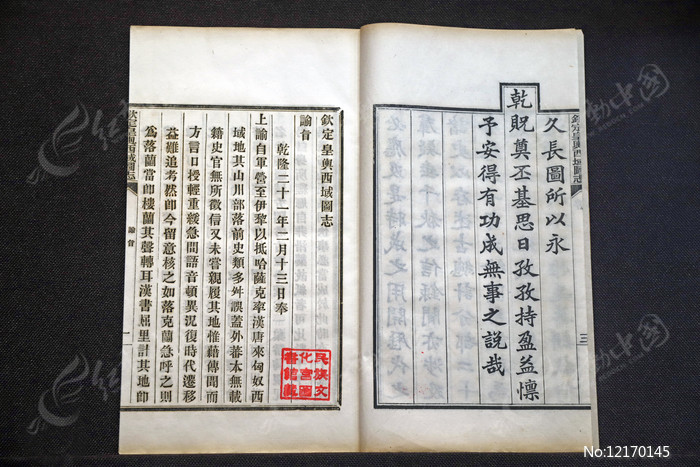 欽定皇輿西域圖志
久長圖所以永
乾貺奠丕基思日孜孜持盈益懍
予安得有功成無事之說哉
三
欽定皇輿西域圖志
諭旨
乾隆二十一年二月十三日奉
上諭自軍營至伊犂以抵哈薩克率漢唐來匈奴西
域地其山川部落前史類多舛誤蓋外蕃本無載
籍史官無所徵信又未嘗親履其地惟藉傳聞而
方言口授輕重緩急間語音頓異況復時代遷移
益難追考然即今留意核之如落克蘭急呼之則
為落蘭當即樓蘭其聲轉耳漢書屈里計其地即
欽定皇輿西域圖志
諭旨
一
民族文
化宮圖
書館藏
No:12170145